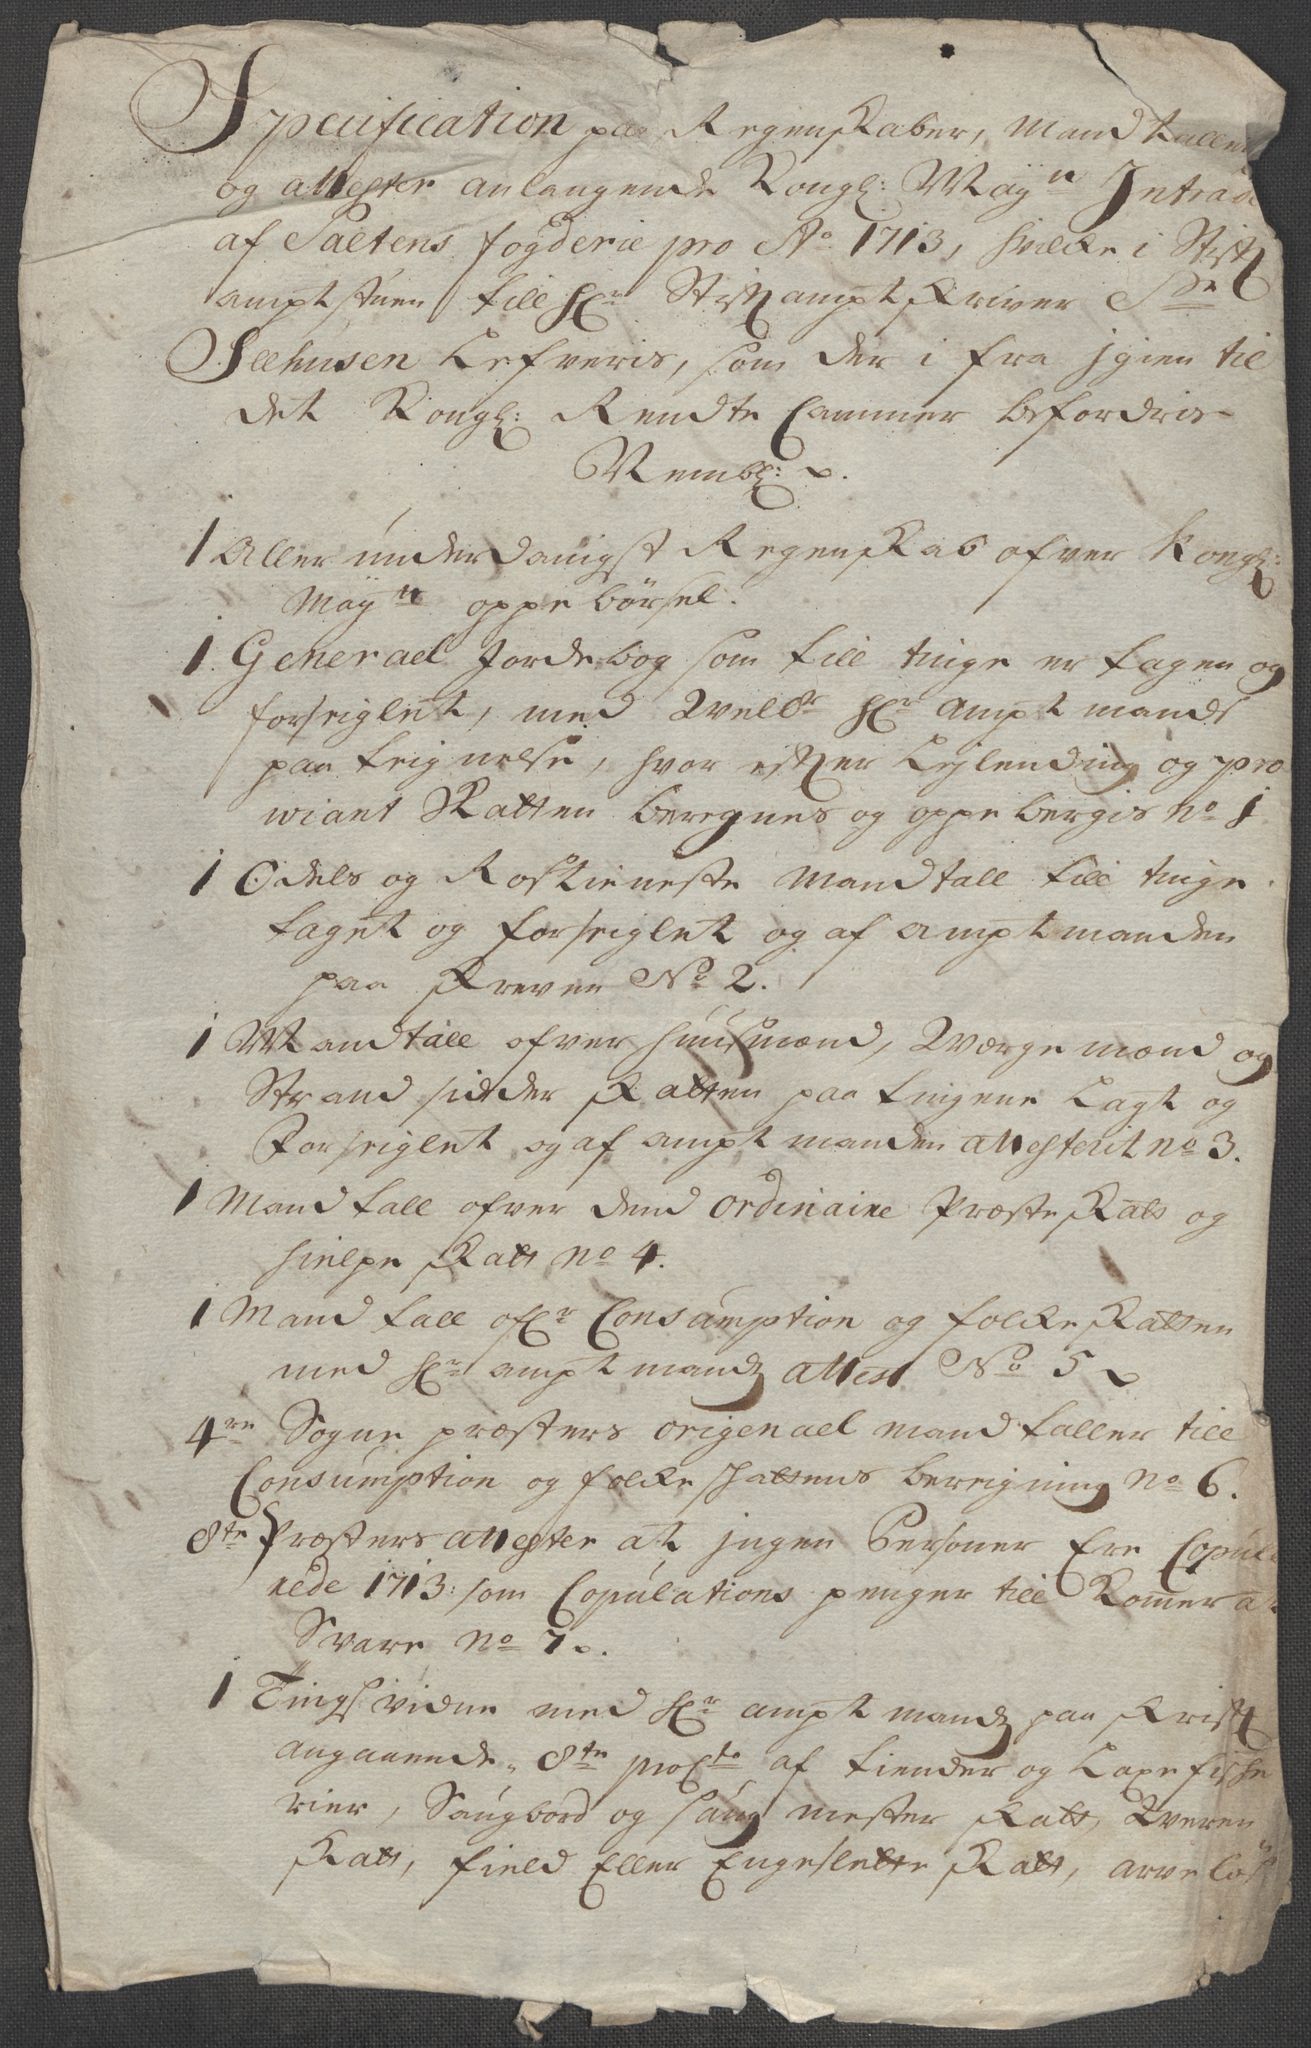 Specification paa Regenskaber, Mandtaller
og attester anlangende Kongl: Mayts Intrade
af Saltens fogderie pro Ao 1713, hvilke i Stiftz
ampt stuen till Hr Stiftzamptskriver Sr
Seehusen Lefveris, som der i fra jgien til
det Kongl: Rendte Cammer befordris
Nembl: 
1 Aller underdanigst Regenskab ofver Kongl:
Mayts oppebørsel.
1. General Jordebog som till tinge er tagen og
forseiglet, med Welbr Hr Ampt mands
paa teignelse, hvor efter Lejlending og pro
wiant Skatten beregnes og oppebergis No 1
1 Odels og Rostieneste Mandtall till tinge
taget og forseiglet og af amptmanden
paa skreven No 2.
1 Mandtall ofver huusmænd, Wærge mænd og
Strand sidder skatten paa tingene Lagt og
Forseiglet og af amptmanden attesterit No 3.
1 Mandtall ofver dend ordinaire Præste skatt og
hielpe skatt No 4.
1 Mandtall ofr Consumption og folkeskatten
med Hr amptmandz attest No 5
4re Sogne præsters origenael mandtaller till
Consumption og folke skattens bereigning No 6.
8te Præsters attester at jngen Personer Ere Copule
rede 1713: som Copulations penger till Komer at
Svare No 7.
1 Tingsvidne med Hr amptmandz paaskrift
angaaende 8te pro af tiender og Laxe fiske
rier, Saugbord og saug mester skatt, Qveren
skatt, field Eller Engeslette skatt, arveløs